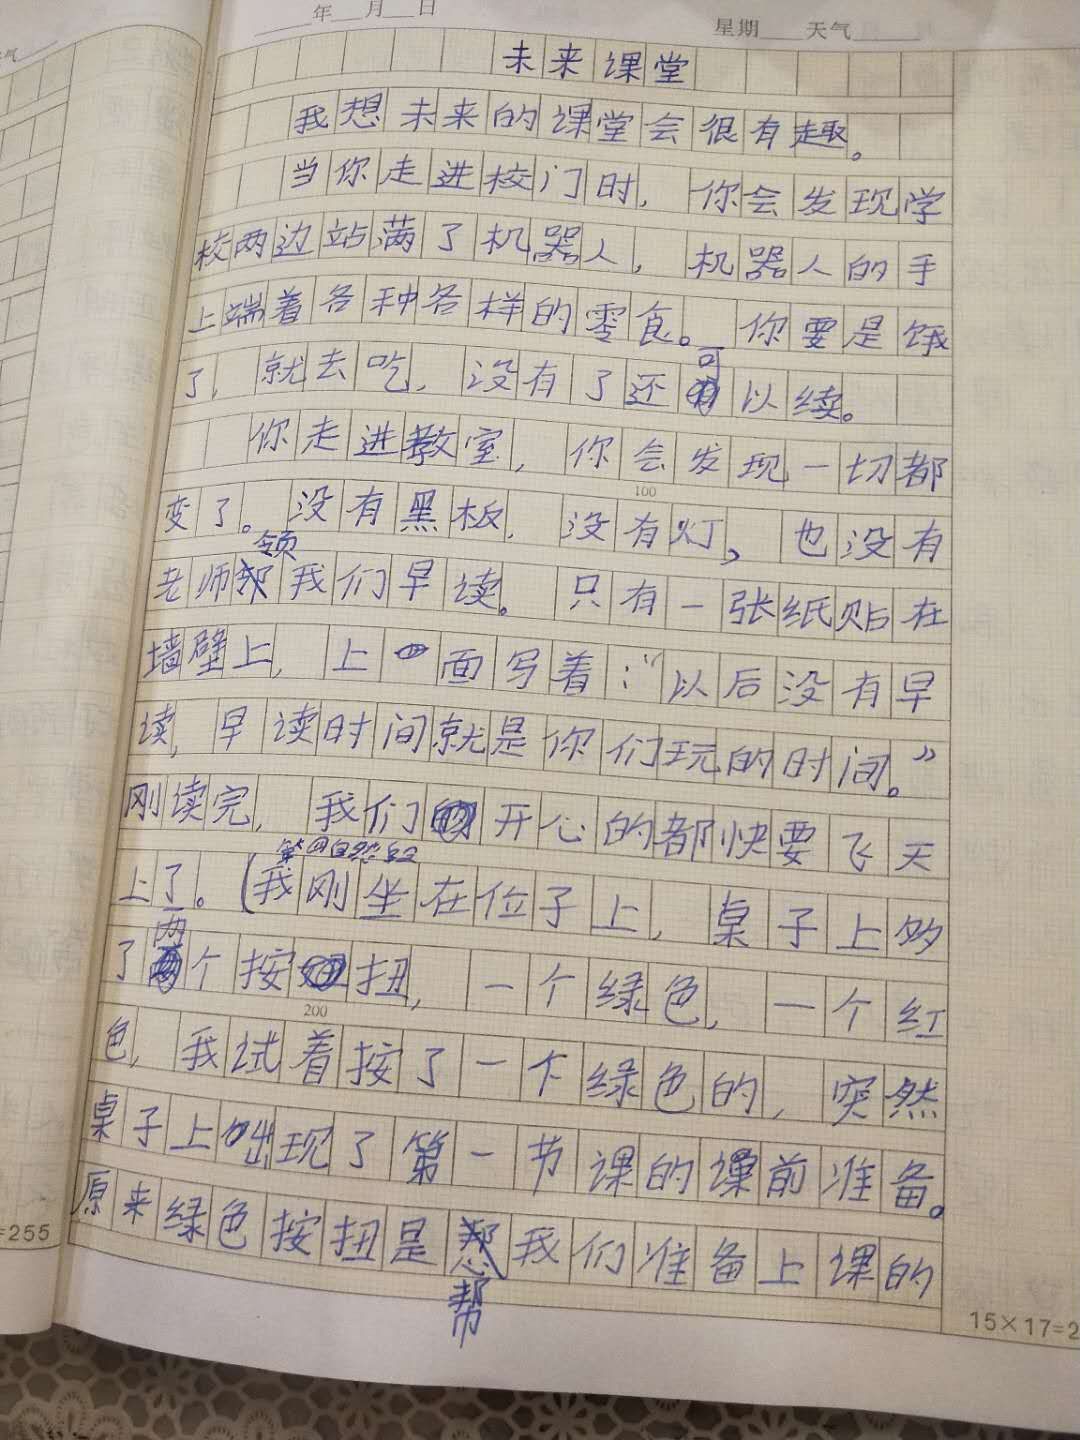 年 月 日
星期 天气
气
未来课堂
我想未来的课堂会很有趣。
当你走进校门时,你会发现学
校两边站满了机器人,机器人的手
上端着各种各样的零食。你要是饿
了,就去吃,没有了还可以续。
你走进教室,你会发现一切都
100
变了。没有黑板,没有灯,也没有
老师领我们早读。只有一张纸贴在
墙壁上,上面写着:“以后没有早
读,早读时间就是你们玩的时间。”
刚读完,我们开心的都快要飞天
第四自然段
上了。(我刚坐在位子上,桌子上多
了两个按扭,一个绿色,一个红
200
色,我试着按了一下绿色的,突然
桌子上出现了第一节课的课前准备。
原来绿色按扭是帮我们准备上课的
=255
15×17=2